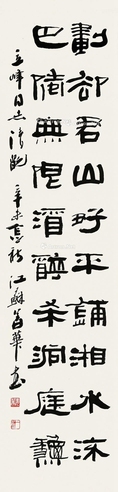 劃却君山好平鋪湘水流
巴陵無限酒醉殺洞庭秋
峰同志清觀 辛未 江蘇 華書